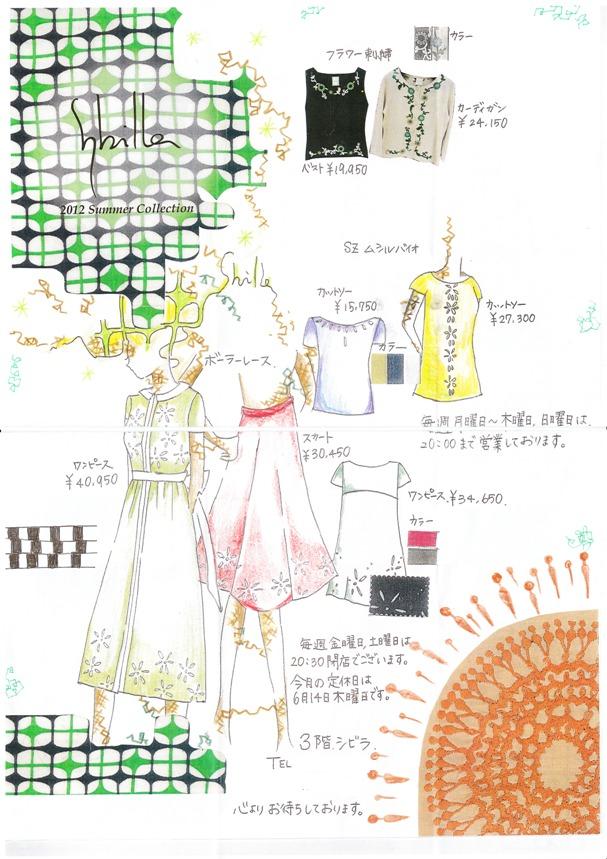 フラワー刺繍
カラー
カーディガン
¥24,150
ベスト ¥19,950
Sybilla
2012 Summer Collection
SZ ムシルバイオ
カットソー
¥15,750
カットソー
¥27,300
カラー
ボーラーレース
毎週 月曜日〜木曜日, 日曜日は、
20:00まで営業しております。
スカート
¥30,450
ワンピース
¥40,950
ワンピース.¥34,650.
カラー
毎週 金曜日, 土曜日は
20:30閉店でございます。
今月の定休日は
6月14日木曜日です。
3階.シビラ.
TEL
心より お待ちしております。